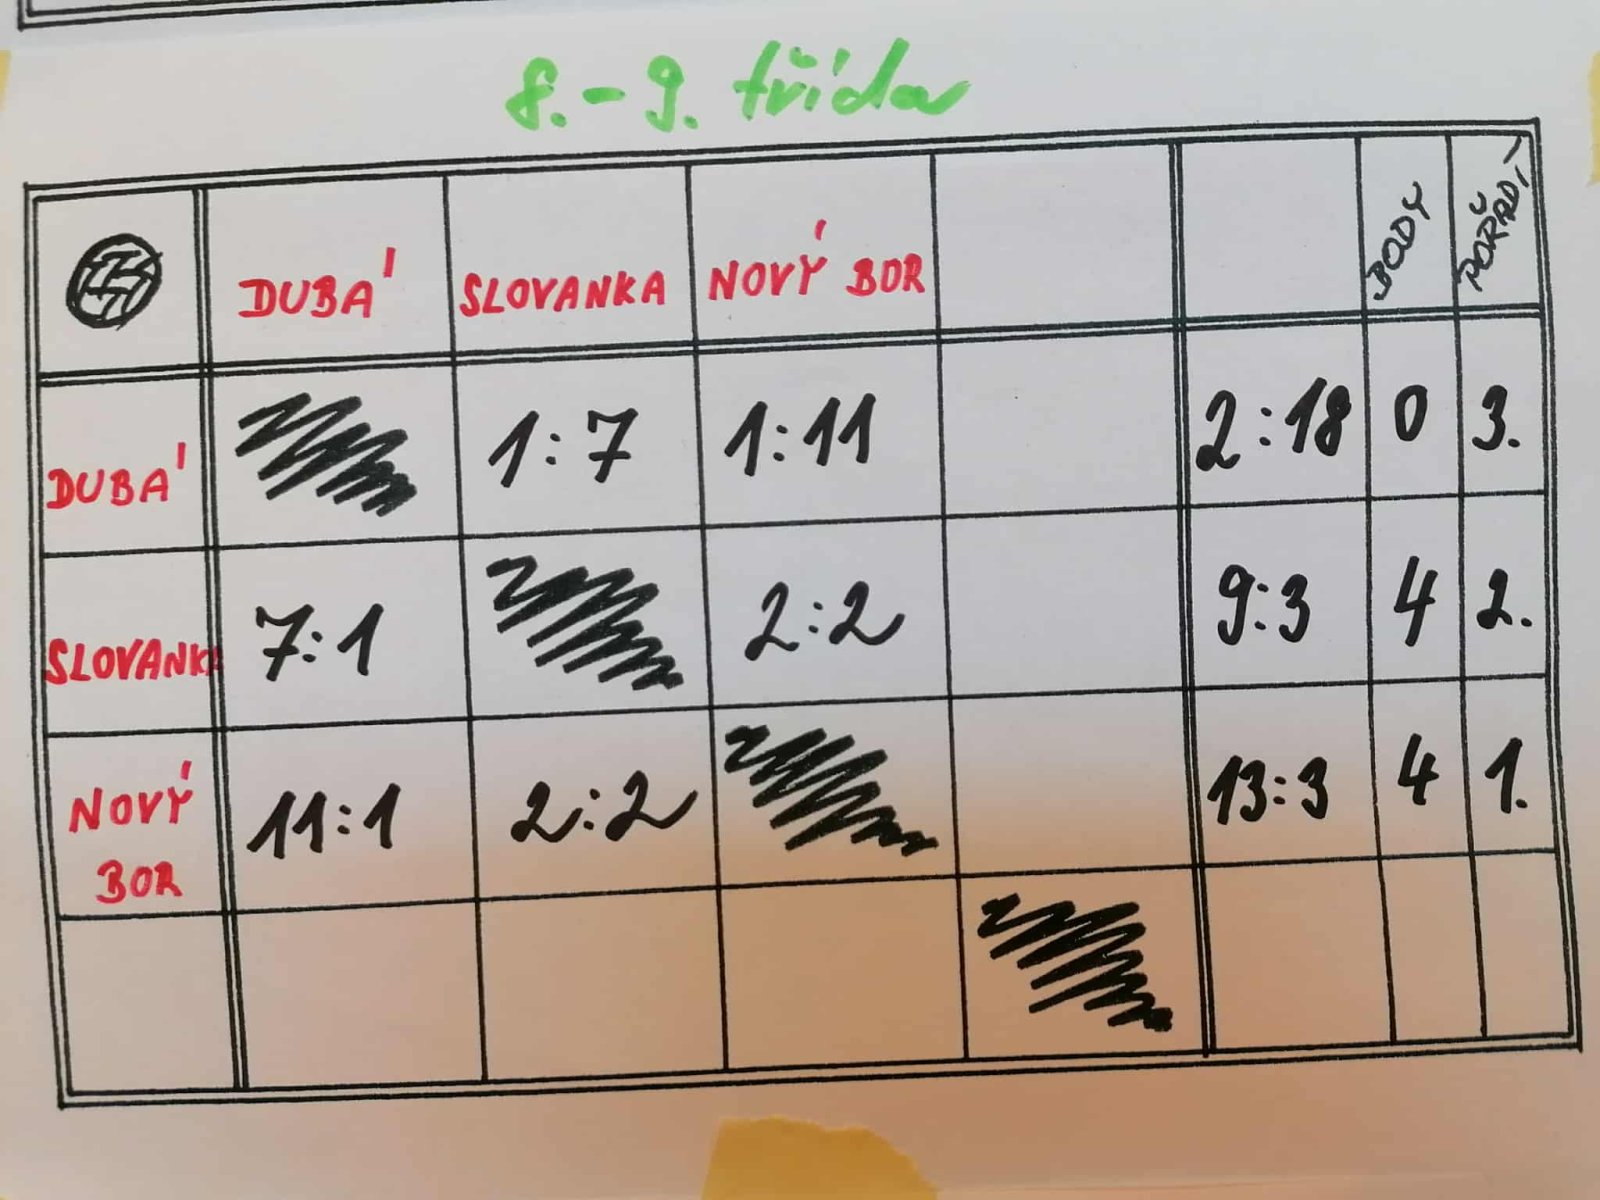 8.-9. třída
DUBÁ SLOVANKA NOVÝ BOR BODY POŘADÍ
DUBÁ 1:7 1:11 2:18 0 3.
SLOVANKA 7:1 2:2 9:3 4 2.
NOVÝ BOR 11:1 2:2 13:3 4 1.